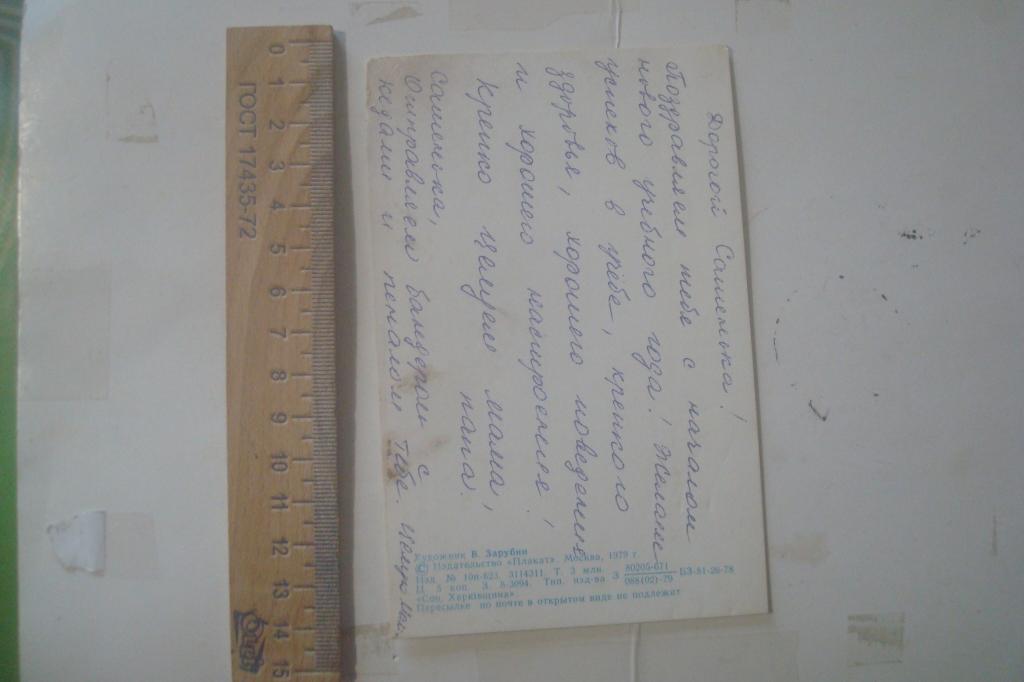 Дорогой Сашенька!
Поздравляем тебя с началом
нового учебного года! Желаем
успехов в учёбе, крепкого
здоровья, хорошего поведения
и хорошего настроения!
Крепко целуем мама,
папа.
Сашенька,
Отправляем бандероль с
кедами и пеналом тебе. Целую Мам
Художник В. Зарубин
© Издательство «Плакат» Москва, 1979 г.
Изд. № 10п-623. 3114311. Т. 3 млн. 80205-671
Ц. 3 коп. З. 8-3094. Тип. изд-ва З 088(02)-79 БЗ-81-26-78
«Соц. Харківщина»
Пересылке по почте в открытом виде не подлежит
0 1 2 3 4 5 6 7 8 9 10 11 12 13 14 15
ГОСТ 17435-72